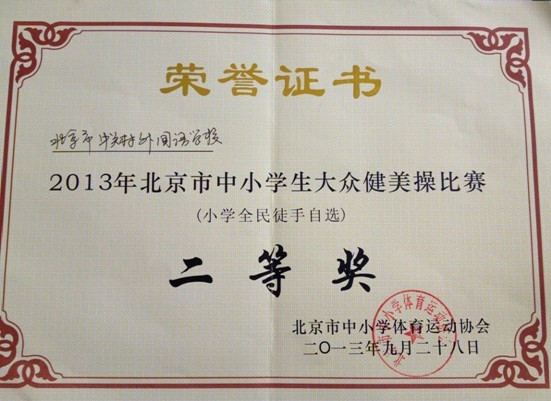 荣誉证书
北京市中关村外国语学校
2013年北京市中小学生大众健美操比赛
(小学全民徒手自选)
二等奖
北京市中小学体育运动协会
二〇一三年九月二十八日